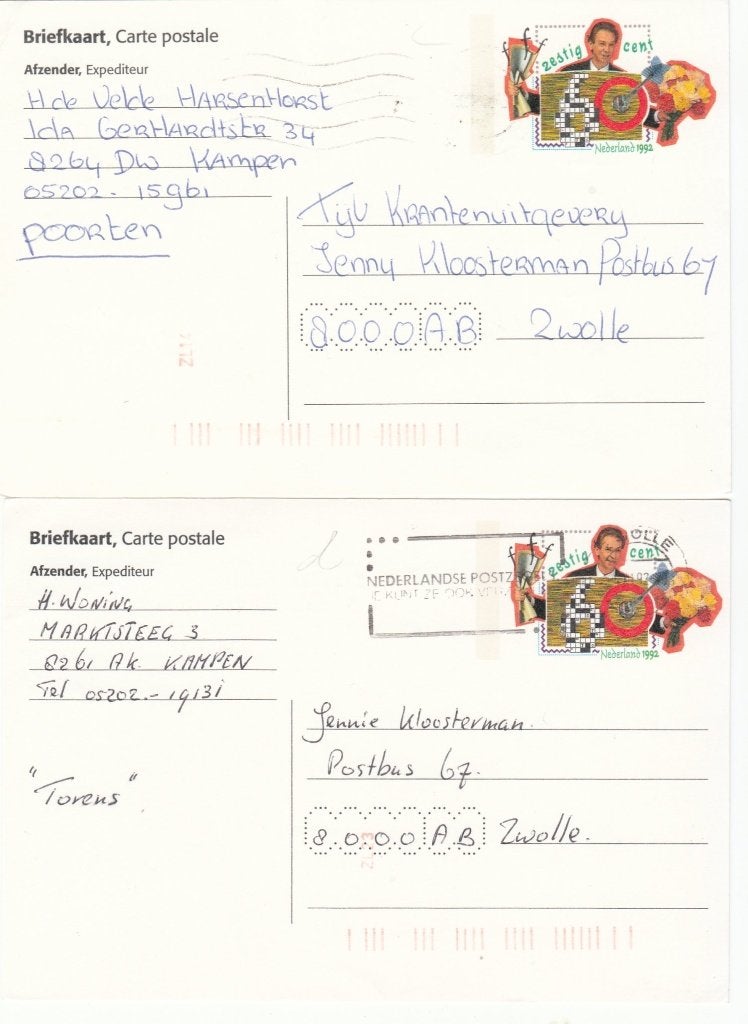 Briefkaart, Carte postale
Afzender, Expediteur
H de Velde Harsenhorst
Ida Gerhardtstr 34
8264 DW Kampen
05202-15961
poorten
fff
zestig cent
60
Nederland 1992
Tijl Krantenuitgevery
Jenny Kloosterman Postbus 67
8000 AB Zwolle
ZL14
Briefkaart, Carte postale
Afzender, Expediteur
H. Woning
Marktsteeg 3
8261 AK. Kampen
Tel 05202.-19131
"Torens"
NEDERLANDSE POSTZ
JE KUNT ZE OOK
OLLE
fff
zestig cent
60
Nederland 1992
Jennie Kloosterman.
Postbus 67.
8000 AB Zwolle.